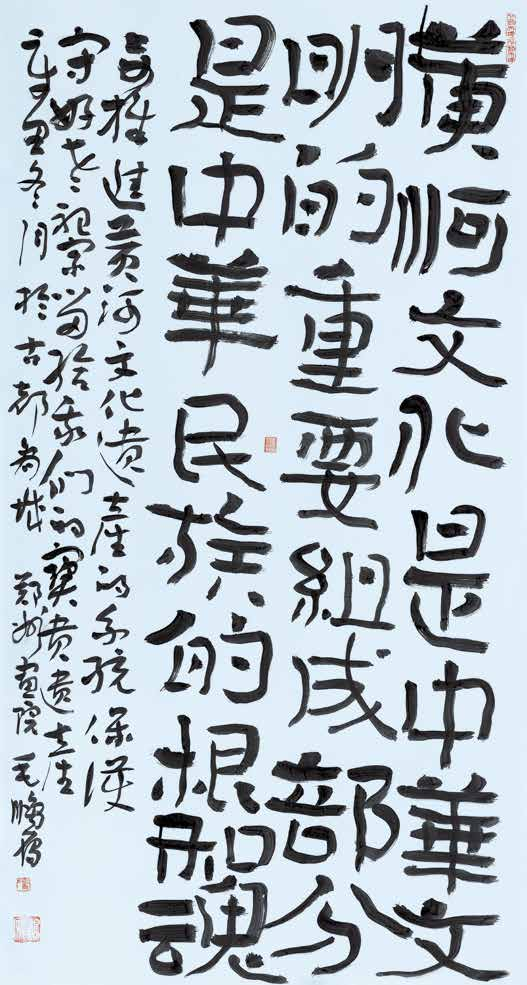 黄河文化是中華文
明的重要組成部分
是中華民族的根和魂
要推進黄河文化遺產的系統保護
守好老祖宗留給我们的寶貴遺產
辛丑冬月於古都商城 鄭州畫院 毛鵬